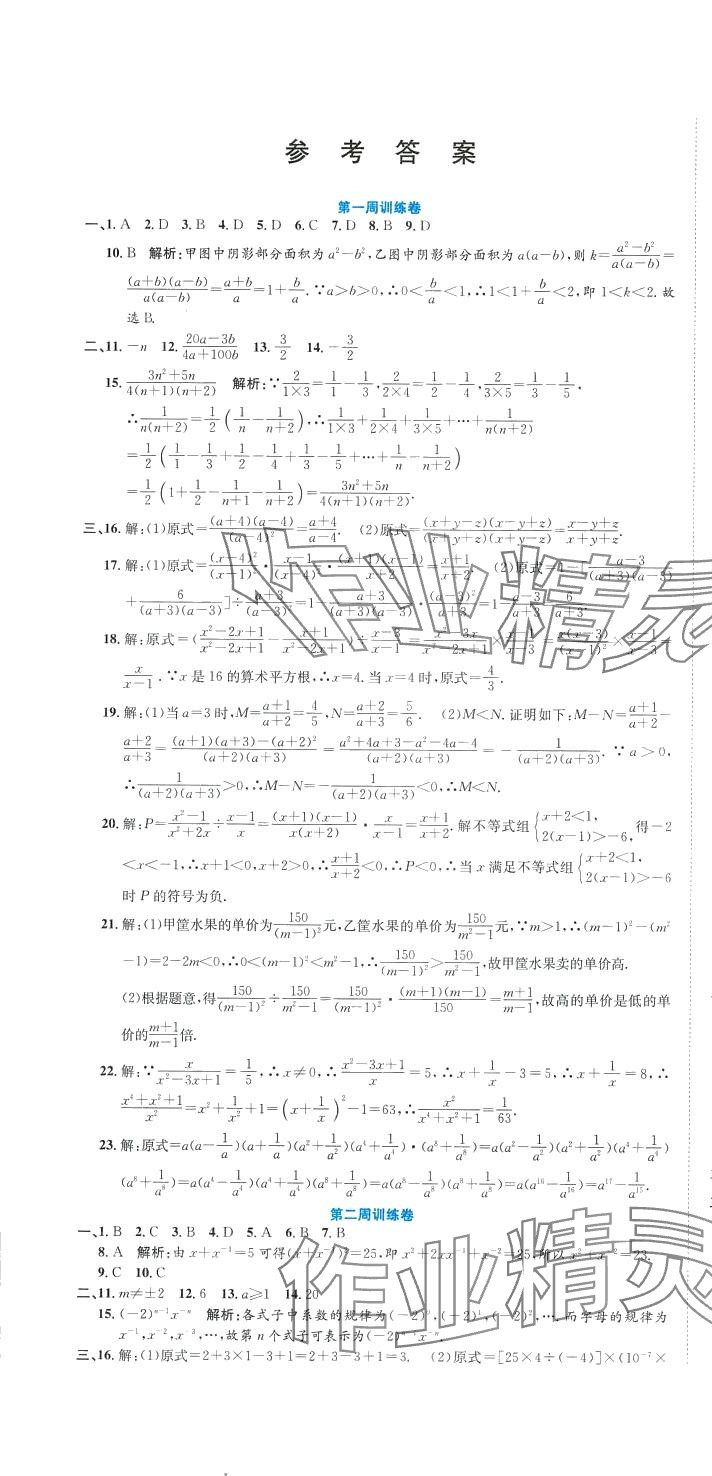 参考答案
第一周训练卷
一、1. A 2. D 3. B 4. D 5. D 6. C 7. D 8. B 9. D
10. B 解析:甲图中阴影部分面积为a²-b²,乙图中阴影部分面积为a(a-b),则k=(a²-b²)/(a(a-b))=
((a+b)(a-b))/(a(a-b))=(a+b)/a=1+b/a.∵a>b>0,∴0<b/a<1,∴1<1+b/a<2,即1<k<2.故
选B.
二、11. -n 12. (20a-3b)/(4a+100b) 13. 3/2 14. -3/2
15. (3n²+5n)/(4(n+1)(n+2)) 解析:∵2/(1×3)=1/1-1/3,2/(2×4)=1/2-1/4,2/(3×5)=1/3-1/5,
∴1/(n(n+2))=1/2(1/n-1/(n+2)),∴1/(1×3)+1/(2×4)+1/(3×5)+…+1/(n(n+2))
=1/2(1-1/3+1/2-1/4+1/3-1/5+…+1/n-1/(n+2))
=1/2(1+1/2-1/(n+1)-1/(n+2))=(3n²+5n)/(4(n+1)(n+2)).
三、16. 解:(1)原式=((a+4)(a-4))/(a-4)²=(a+4)/(a-4). (2)原式=((x+y-z)(x-y+z))/((x+y+z)(x+y-z))=(x-y+z)/(x+y+z).
17. 解:(1)原式=(x-4)²/(x-1)²·(x-1)/(x-4)²·((x+1)(x-1))/=(x+1)/. (2)原式=1-[(a-3)/
+6/((a+3)(a-3))]÷(a+3)/=1-(a+3)/((a+3)(a-3))·/(a+3)=1-/(a+3)=3/(a+3).
18. 解:原式=((x²-2x+1)/(x²-2x+1)-(x+1)/(x²-2x+1))÷(x-3)/(x-1)=(x²-3x)/(x²-2x+1)×(x-1)/(x-3)=(x(x-3))/(x-1)²×(x-1)/(x-3)=
x/(x-1).∵x是16的算术平方根,∴x=4.当x=4时,原式=4/3.
19. 解:(1)当a=3时,M=(a+1)/(a+2)=4/5,N=(a+2)/(a+3)=5/6. (2)M<N.证明如下:M-N=(a+1)/(a+2)-
(a+2)/(a+3)=((a+1)(a+3)-(a+2)²)/((a+2)(a+3))=(a²+4a+3-a²-4a-4)/((a+2)(a+3))=-1/((a+2)(a+3)).∵a>0,
∴1/((a+2)(a+3))>0,∴M-N=-1/((a+2)(a+3))<0,∴M<N.
20. 解:P=(x²-1)/(x²+2x)÷(x-1)/x=((x+1)(x-1))/(x(x+2))·x/(x-1)=(x+1)/(x+2).解不等式组{x+2<1,2(x-1)>-6,得-2
<x<-1,∴x+1<0,x+2>0,∴(x+1)/(x+2)<0,∴P<0,∴当x满足不等式组{x+2<1,2(x-1)>-6
时P的符号为负.
21. 解:(1)甲筐水果的单价为150/(m-1)²元,乙筐水果的单价为150/(m²-1)元,∵m>1,∴(m-1)²-(m²
-1)=2-2m<0,∴0<(m-1)²<m²-1,∴150/(m-1)²>150/(m²-1),故甲筐水果卖的单价高.
(2)根据题意,得150/(m-1)²÷150/(m²-1)=150/(m-1)²·((m+1)(m-1))/150=(m+1)/(m-1),故高的单价是低的单
价的(m+1)/(m-1)倍.
22. 解:∵x/(x²-3x+1)=1/5,∴x≠0,∴(x²-3x+1)/x=5,∴x+1/x-3=5,∴x+1/x=8,∴
(x⁴+x²+1)/x²=x²+1/x²+1=(x+1/x)²-1=63,∴x²/(x⁴+x²+1)=1/63.
23. 解:原式=a(a-1/a)(a+1/a)(a²+1/a²)(a⁴+1/a⁴)·(a⁸+1/a⁸)=a(a²-1/a²)(a²+1/a²)(a⁴+1/a⁴)
(a⁸+1/a⁸)=a(a⁴-1/a⁴)(a⁴+1/a⁴)(a⁸+1/a⁸)=a(a⁸-1/a⁸)(a⁸+1/a⁸)=a(a¹⁶-1/a¹⁶)=a¹⁷-1/a¹⁵.
第二周训练卷
一、1. B 2. C 3. B 4. D 5. A 6. B 7. B
8. A 解析:由x+x⁻¹=5可得(x+x⁻¹)²=25,即x²+2xx⁻¹+x⁻²=25,所以x²+x⁻²=23.
9. C 10. C
二、11. m≠±2 12. 6 13. a≥1 14. 20
15. (-2)ⁿ⁻¹x⁻ⁿ 解析:各式子中系数的规律为(-2)⁰,(-2)¹,(-2)²,…,而字母的规律为
x⁻¹,x⁻²,x⁻³,…,故第n个式子可表示为(-2)ⁿ⁻¹x⁻ⁿ.
三、16. 解:(1)原式=2+3×1-3+1=2+3-3+1=3. (2)原式=[25×4÷(-4)]×(10⁻⁷×
作业精灵
作业精灵